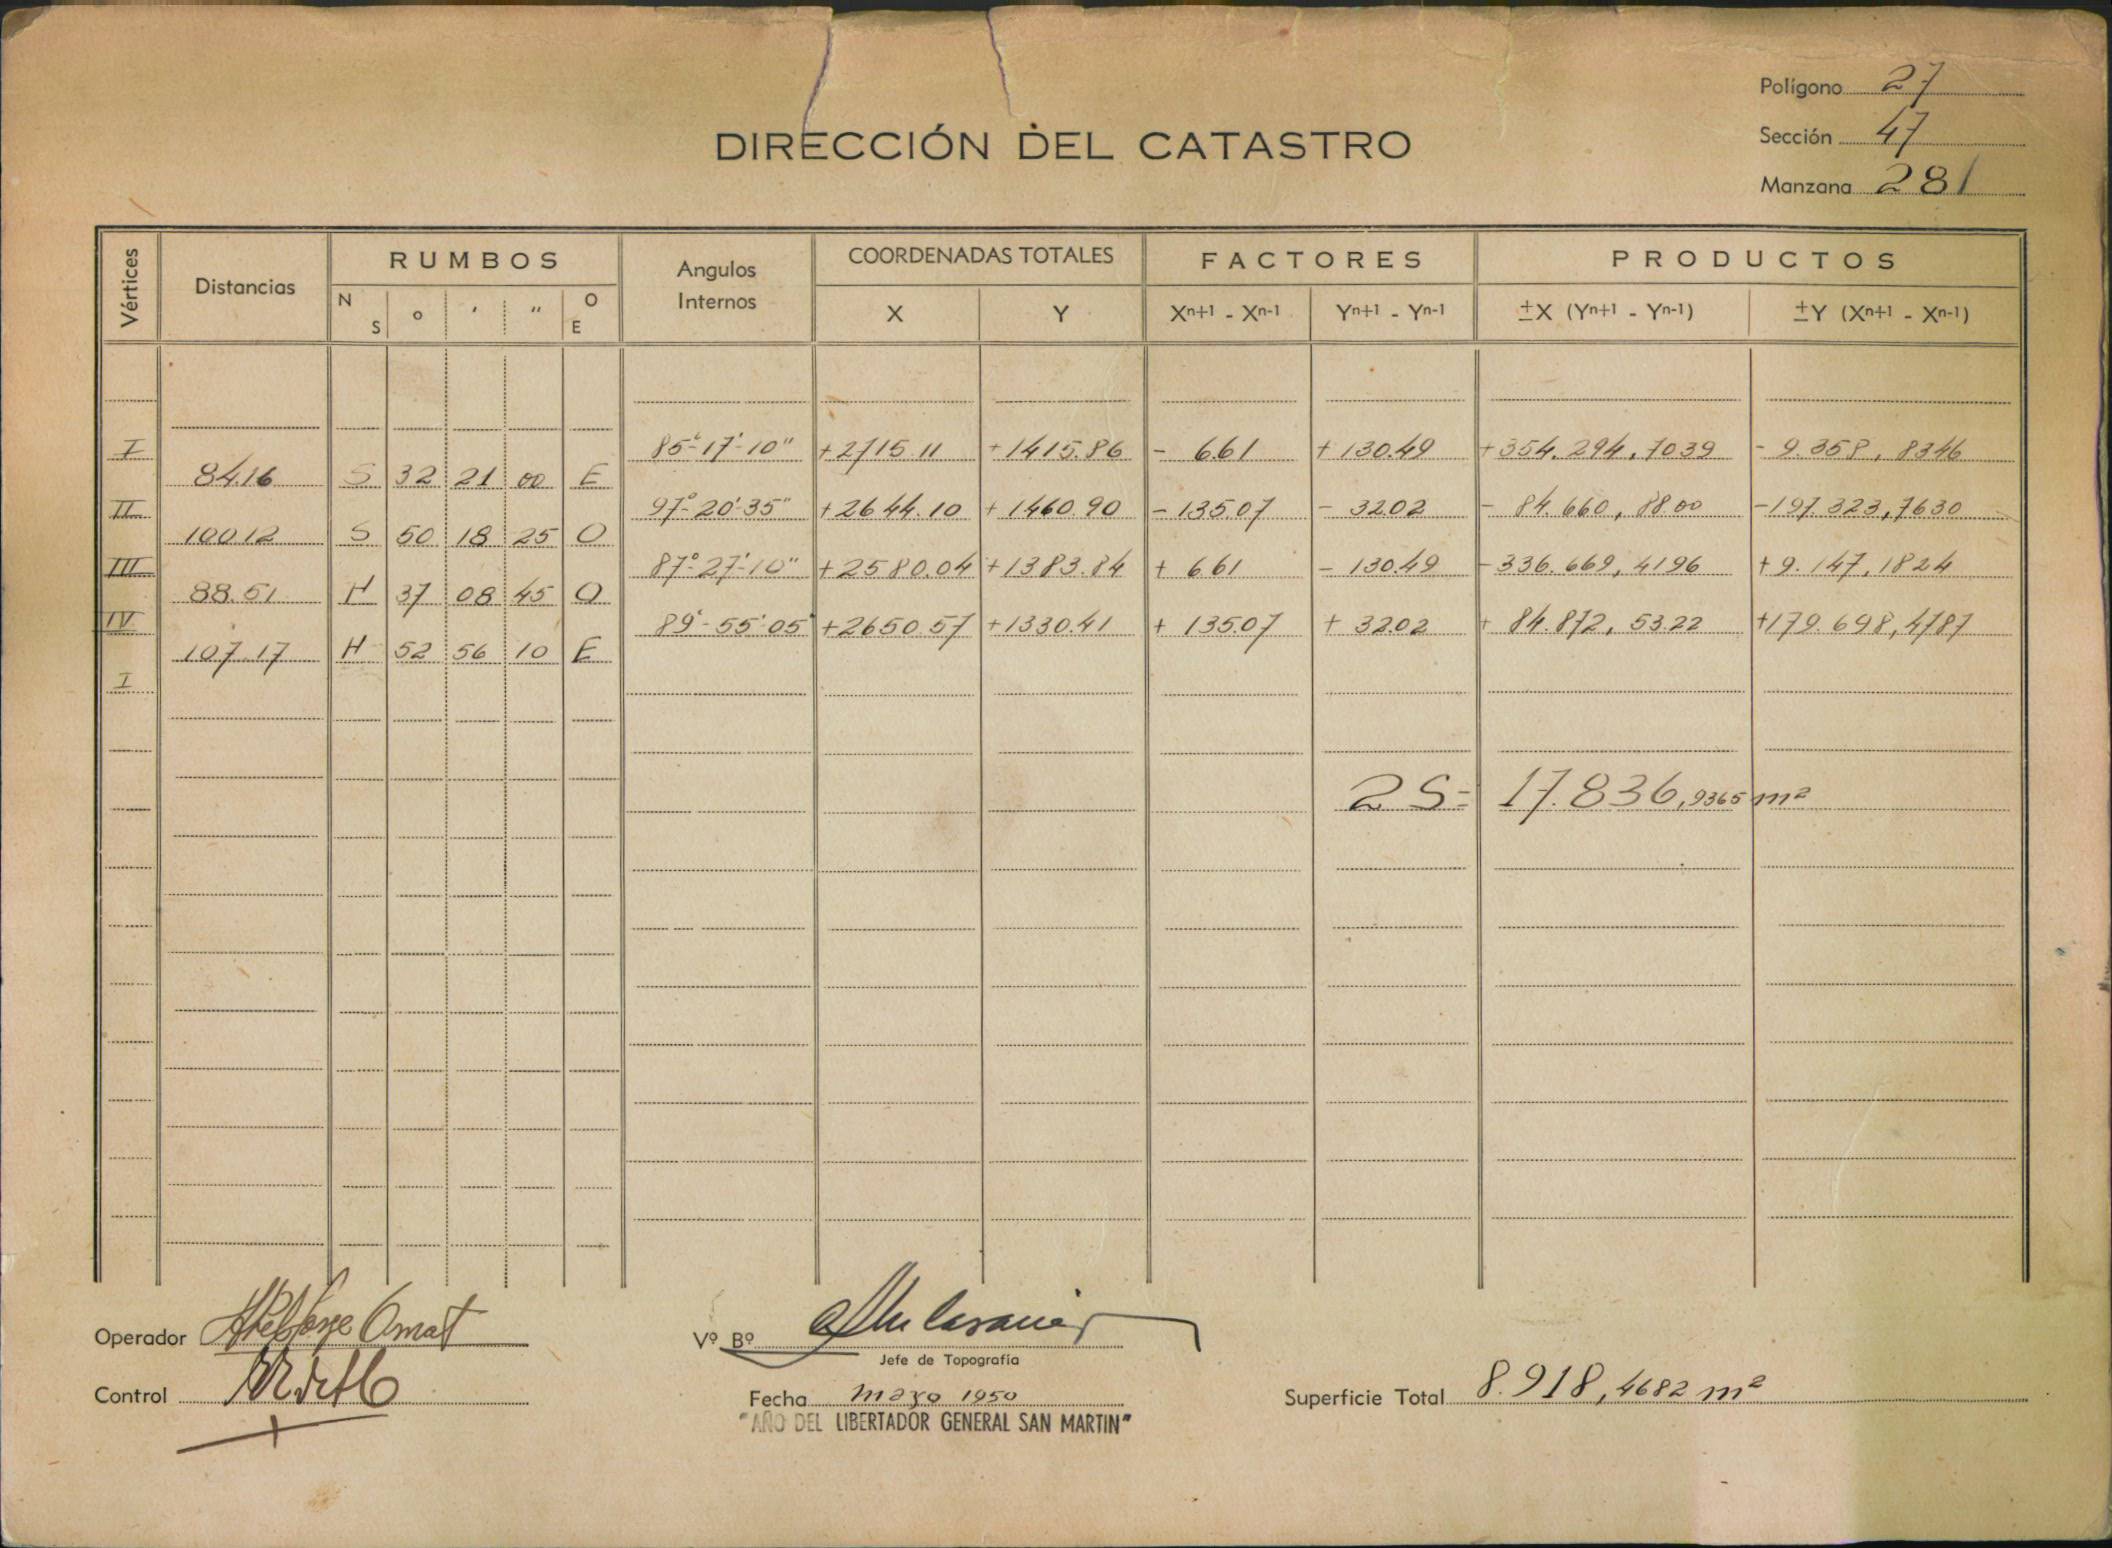 Polígono 27
Sección 47
Manzana 281
DIRECCIÓN DEL CATASTRO
Vértices Distancias RUMBOS Angulos Internos COORDENADAS TOTALES FACTORES PRODUCTOS
N S ° ' " O E X Y Xn+1 - Xn-1 Yn+1 - Yn-1 ±X (Yn+1 - Yn-1) ±Y (Xn+1 - Xn-1)
I 85°-17'-10" +2715.11 +1415.86 - 6.61 +130.49 +354.294,7039 - 9.358,8346
84.16 S 32 21 00 E
II 97°-20'-35" +2644.10 +1460.90 -135.07 - 32.02 - 84.660,8800 -197.323,7630
100.12 S 50 18 25 O
III 87°-27'-10" +2580.04 +1383.84 + 6.61 - 130.49 -336.669,4196 +9.147,1824
88.51 N 37 08 45 O
IV 89°-55'-05" +2650.57 +1330.41 + 135.07 + 32.02 + 84.872,5322 +179.698,4787
107.17 N 52 56 10 E
I
2S= 17.836,9365 m²
Operador Omat
Vº Bº
Jefe de Topografía
Control
Fecha mayo 1950
"AÑO DEL LIBERTADOR GENERAL SAN MARTIN"
Superficie Total 8.918,4682 m²